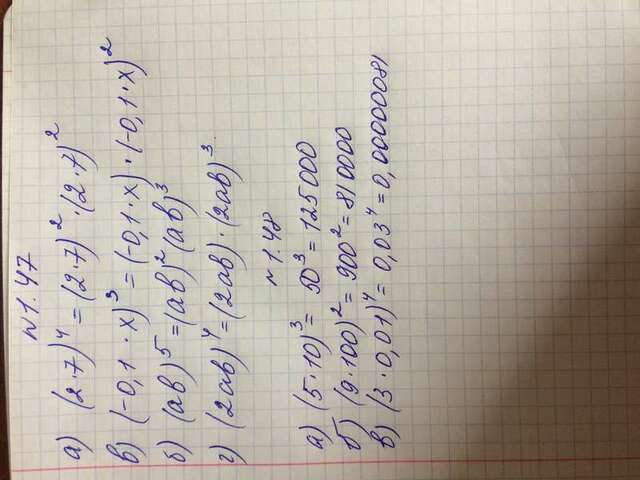 №1.47
а) (2·7)⁴ = (2·7)² · (2·7)²
в) (-0,1 · x)³ = (-0,1·x) · (-0,1·x)²
б) (ab)⁵ = (ab)² (ab)³
г) (2ab)⁴ = (2ab) · (2ab)³
№1.48
а) (5·10)³ = 50³ = 125000
б) (9·100)² = 900² = 810000
в) (3·0,01)⁴ = 0,03⁴ = 0,000000081